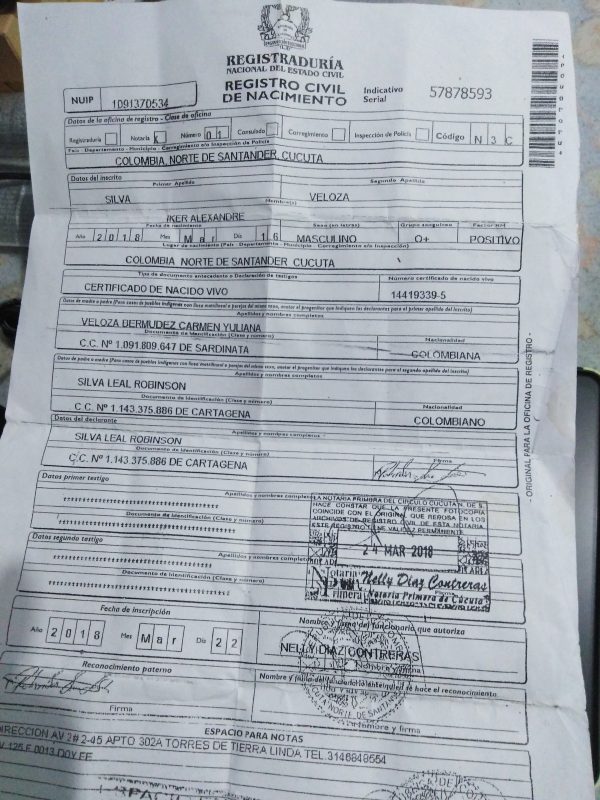 REGISTRADURÍA
NACIONAL DEL ESTADO CIVIL
REGISTRO CIVIL
DE NACIMIENTO
Indicativo
Serial
57878593
NUIP
1091370534
Datos de la oficina de registro - Clase de oficina
Registraduría Notaría X Número 01 Consulado Corregimiento Inspección de Policía Código N 3 C
País - Departamento - Municipio - Corregimiento e/o Inspección de Policía
COLOMBIA, NORTE DE SANTANDER, CUCUTA
Datos del inscrito
Primer Apellido Segundo Apellido
SILVA VELOZA
Nombre(s)
IKER ALEXANDRE
Fecha de nacimiento Sexo (en letras) Grupo sanguíneo Factor RH
Año 2018 Mes Mar Día 16 MASCULINO O+ POSITIVO
Lugar de nacimiento (País - Departamento - Municipio - Corregimiento e/o Inspección)
COLOMBIA NORTE DE SANTANDER CUCUTA
Tipo de documento antecedente o Declaración de testigos Número certificado de nacido vivo
CERTIFICADO DE NACIDO VIVO 14419339-5
Apellidos y nombres completos
VELOZA BERMUDEZ CARMEN YULIANA
Documento de Identificación (Clase y número) Nacionalidad
C.C. Nº 1.091.809.647 DE SARDINATA COLOMBIANA
Apellidos y nombres completos
SILVA LEAL ROBINSON
Documento de Identificación (Clase y número) Nacionalidad
C.C. Nº 1.143.375.886 DE CARTAGENA COLOMBIANO
Datos del declarante
Apellidos y nombres completos
SILVA LEAL ROBINSON
Documento de Identificación (Clase y número) Firma
C.C. Nº 1.143.375.886 DE CARTAGENA
Datos primer testigo
Apellidos y nombres completos
Documento de Identificación (Clase y número)
Datos segundo testigo
Apellidos y nombres completos
Documento de Identificación (Clase y número)
LA NOTARIA PRIMERA DEL CIRCULO CUCUTA N. DE S.
HACE CONSTAR QUE LA PRESENTE FOTOCOPIA
COINCIDE CON EL ORIGINAL QUE REPOSA EN LOS
ARCHIVOS DE REGISTRO CIVIL DE ESTA NOTARIA
ESTE REGISTRO TIENE VALIDEZ PERMANENTE
24 MAR 2018
Notaria
Primera
Nelly Diaz Contreras
Notaria Primera de Cúcuta
Fecha de inscripción
Año 2018 Mes Mar Día 22
Nombre y firma del funcionario que autoriza
NELLY DIAZ CONTRERAS
Nombre y firma
Reconocimiento paterno
Nombre y firma del funcionario ante quien se hace el reconocimiento
Firma
Nombre y firma
ESPACIO PARA NOTAS
DIRECCION AV 3# 2-45 APTO 302A TORRES DE TIERRA LINDA TEL.3146848554
- ORIGINAL PARA LA OFICINA DE REGISTRO -